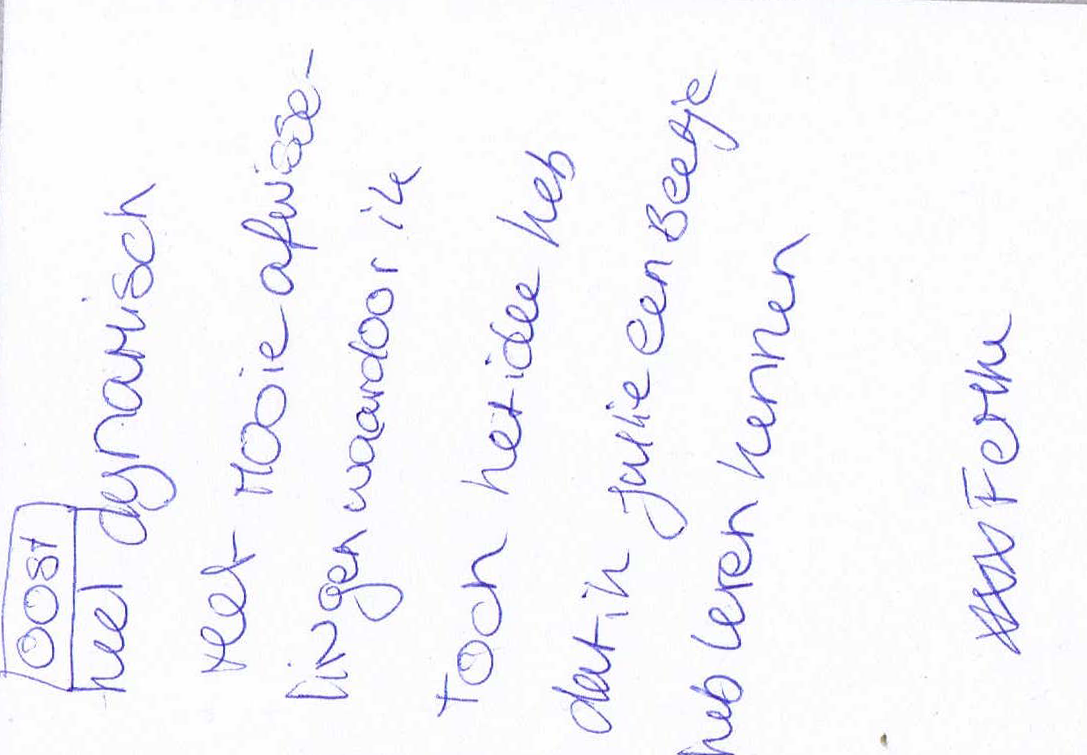 OOST
heel dynamisch
Met Mooie afwisse-
lingen waardoor ik
Toch het idee heb
dat ik jullie een Beetje
heb leren kennen
xxx Femke